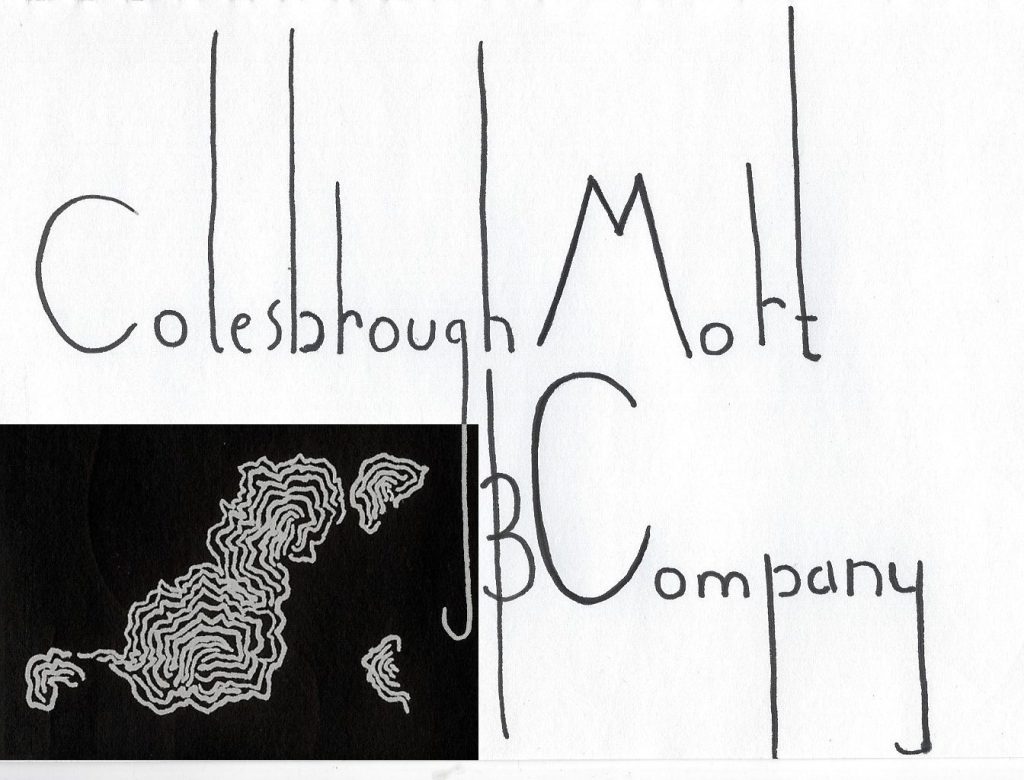 Colesbrough Mort
Company